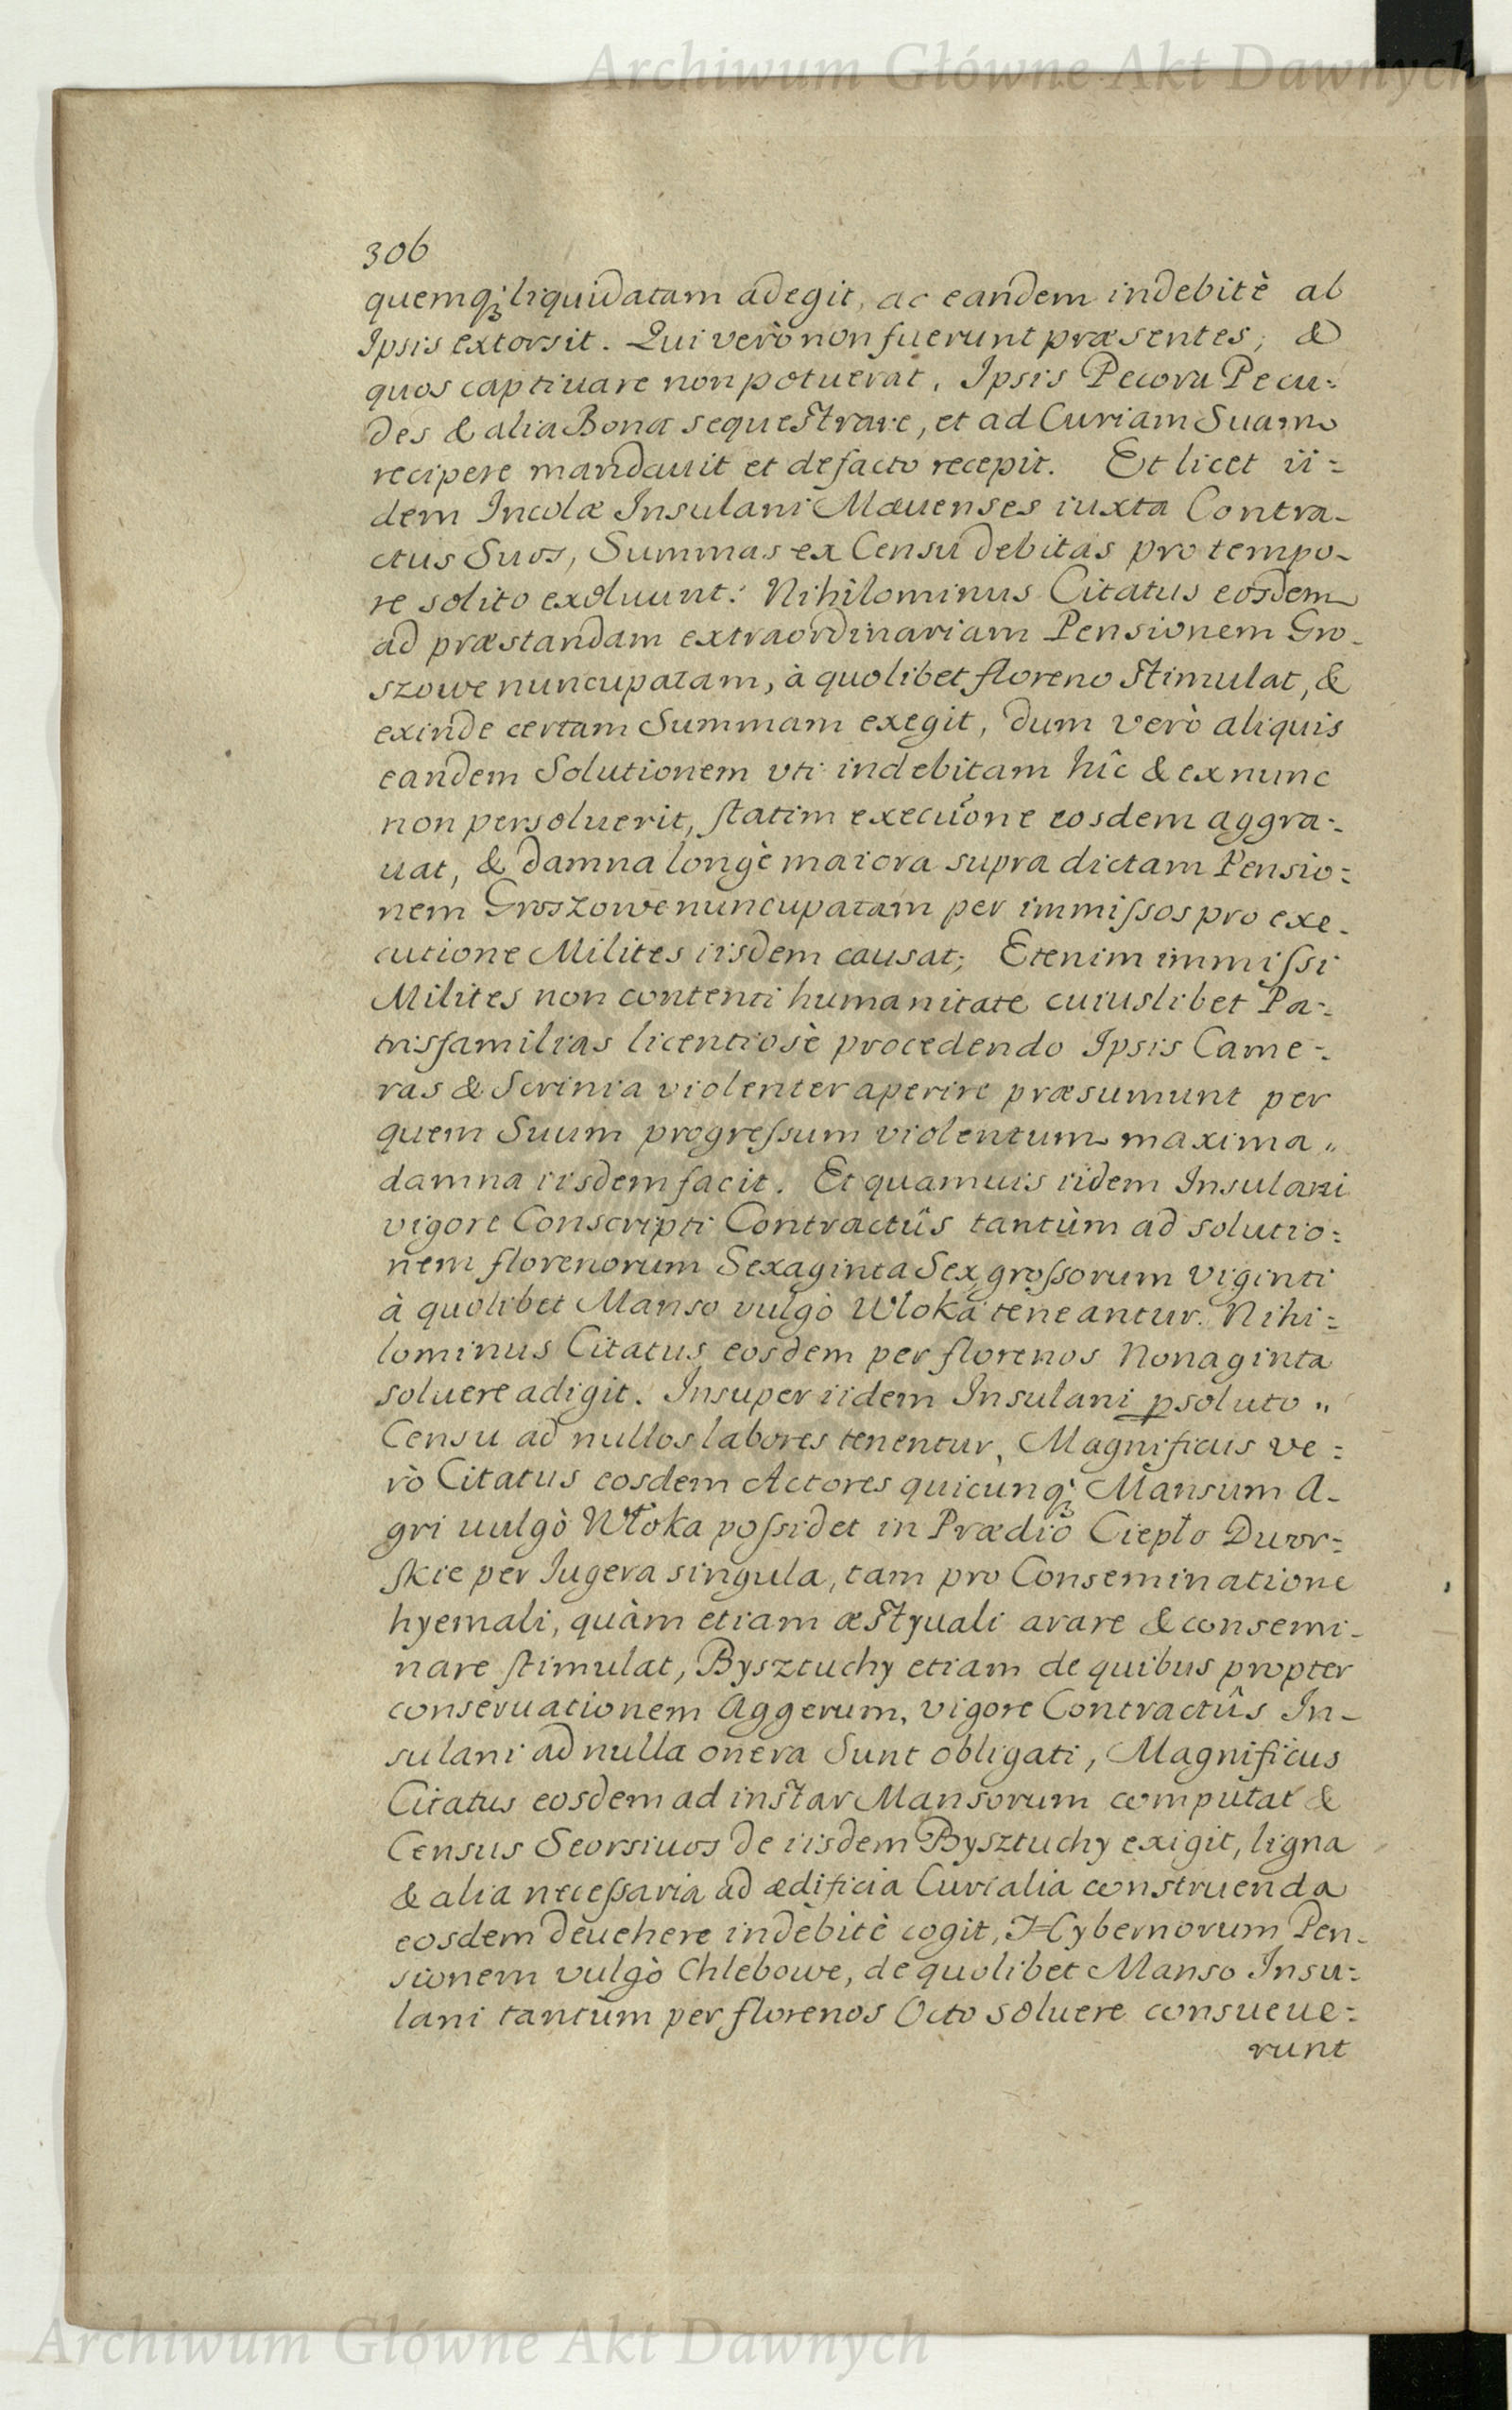 Archiwum Główne Akt Dawnych
306
quemq; liquidatam adegit, ac eandem indebitè ab
Ipsis extorsit. Qui verò non fuerunt præsentes, &
quos captiuare non potuerat, Ipsis Pecora Pecu=
des & alia Bona sequestrare, et ad Curiam Suam
recipere mandauit et defacto recepit. Et licet ii=
dem Incolæ Insulani Mæuenses iuxta Contra-
ctus Suos, Summas ex Censu debitas pro tempo-
re solito exoluunt: Nihilominus Citatus eosdem
ad præstandam extraordinariam Pensionem Gro-
szowe nuncupatam, à quolibet floreno stimulat, &
exinde certam Summam exegit, dum verò aliquis
eandem Solutionem vti indebitam hîc & ex nunc
non persoluerit, statim execuõne eosdem aggra=
uat, & damna longè maiora supra dictam Pensio=
nem Groszowe nuncupatam per immissos pro exe-
cutione Milites iisdem causat; Etenim immissi
Milites non contenti humanitate cuiuslibet Pa=
trisfamilias licentiosè procedendo Ipsis Came=
ras & Scrinia violenter aperire præsumunt per
quem Suum progressum violentum maxima "
damna iisdem facit. Et quamuis iidem Insulani
vigore Conscripti Contractûs tantùm ad solutio=
nem florenorum Sexaginta Sex, grossorum viginti
à quolibet Manso vulgò Włoka teneantur. Nihi=
lominus Citatus eosdem per florenos Nonaginta
soluere adigit. Insuper iidem Insulani psoluto "
Censu ad nullos labores tenentur, Magnificus ve=
rò Citatus eosdem Actores quicunq; Mansum A-
gri uulgò Włoka possidet in Prædio Ciepło Dwor=
skie per Iugera singula, tam pro Conseminatione
hyemali, quàm etiam æstyuali arare & consemi-
nare stimulat, Bysztuchy etiam de quibus propter
conseruationem Aggerum, vigore Contractûs In-
sulani ad nulla onera Sunt obligati, Magnificus
Citatus eosdem ad instar Mansorum computat &
Census Seorsiuos de iisdem Bysztuchy exigit, ligna
& alia necessaria ad ædificia Curialia construenda
eosdem deuehere indebitè cogit, Hybernorum Pen-
sionem vulgò Chlebowe, de quolibet Manso Insu=
lani tantùm per florenos Octo soluere consueue=
runt
Archiwum Główne Akt Dawnych